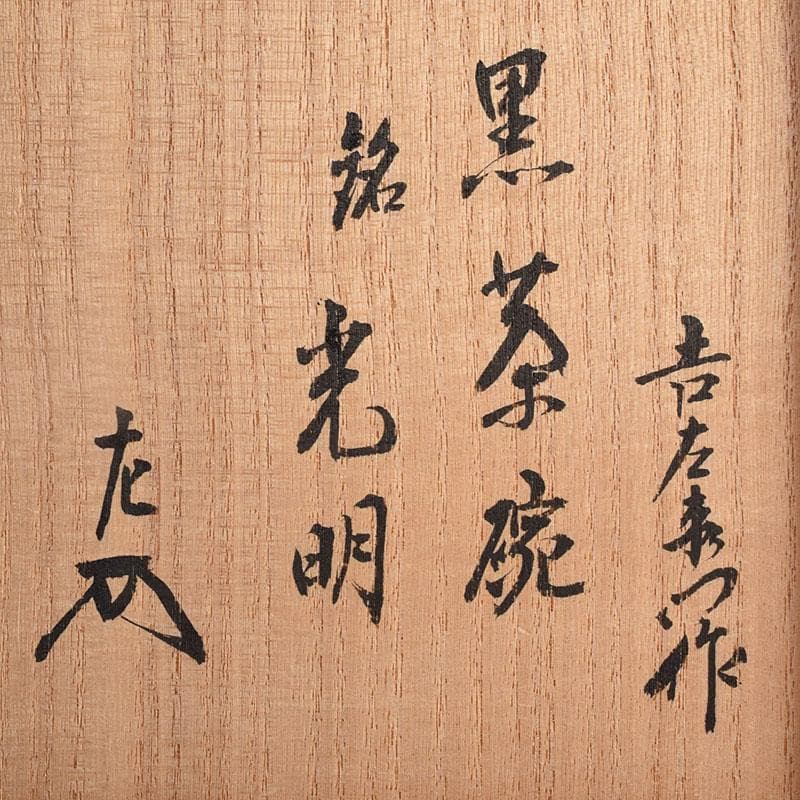 吉左衞門作
黒茶碗
銘
光明
左